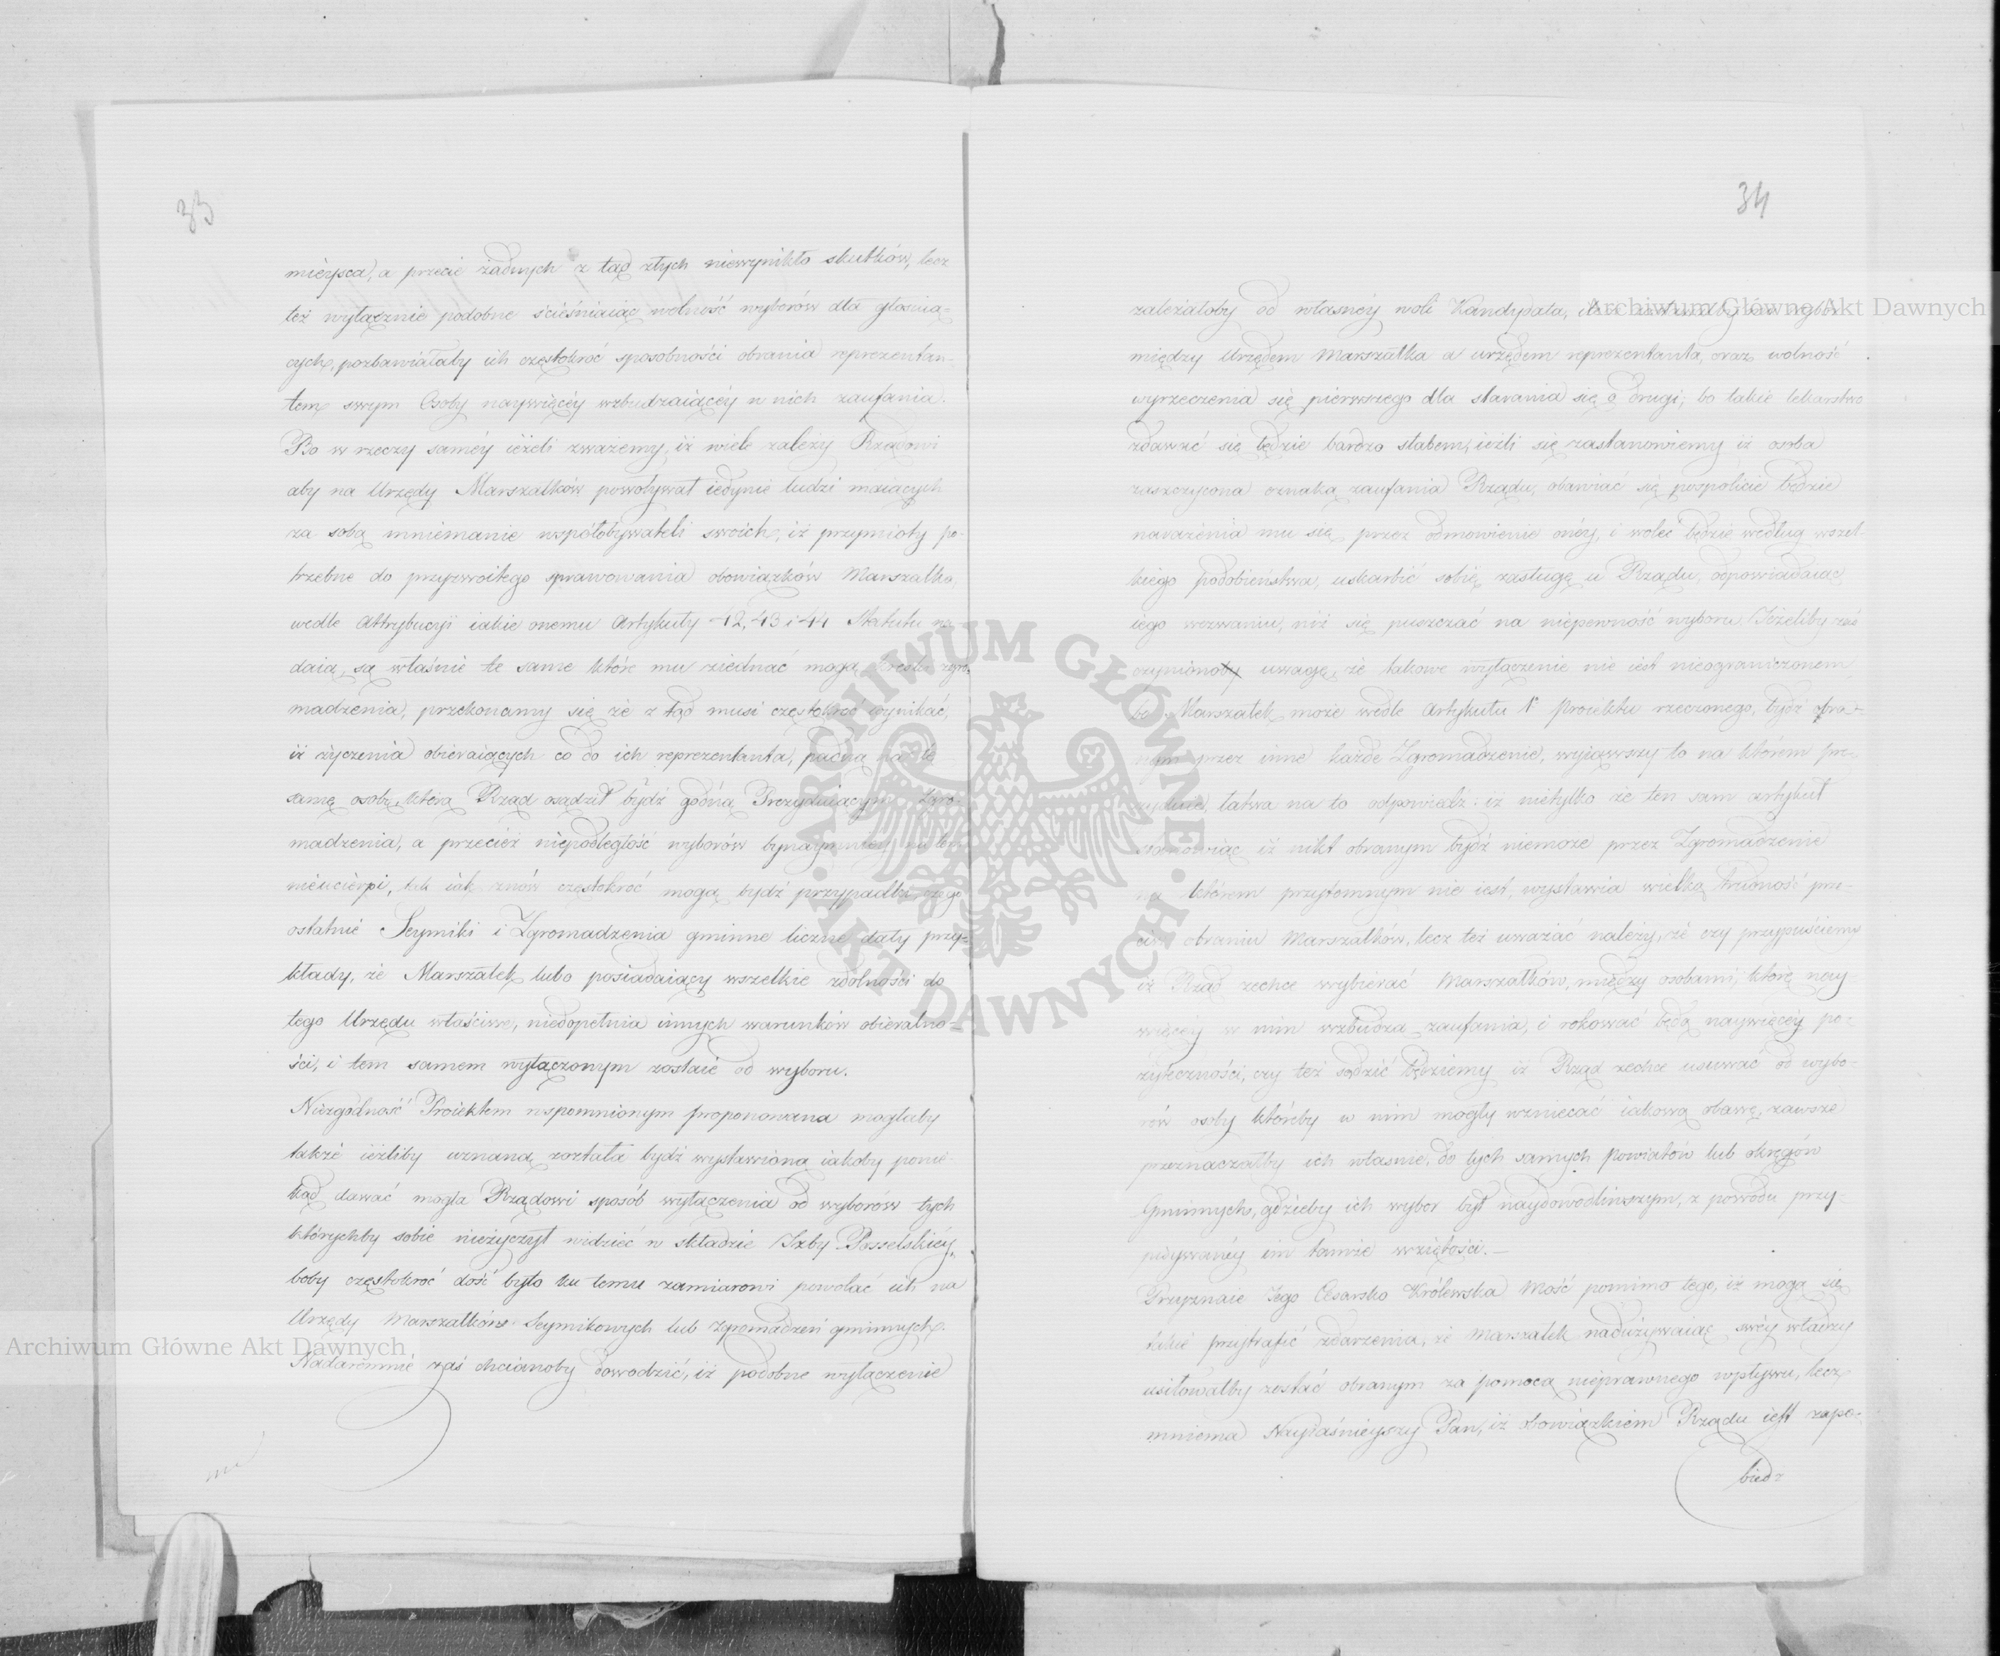 33
mieysca, a przecie żadnych z tąd złych niewynikło skutków, lecz
też wyłącznie podobne ścieśniaiąc wolność wyborów dla głosuią=
cych, pozbawiałaby ich częstokroć sposobności obrania reprezentan-
tem swym Osoby naywięcéy wzbudzaiącéy w nich zaufania.
Bo w rzeczy saméy ieżeli zważemy, iż wiele zależy Rządowi
aby na Urzędy Marszałków powoływał iedynie ludzi maiących
za sobą mniemanie współobywateli swoich, iż przymioty po-
trzebne do przyzwoitego sprawowania obowiązków Marszałka,
wedle Attrybucyi iakie onemu Artykuły 42, 43 i 44 Statutu na
daią, są właśnie te same które mu ziednać mogą zgro-
madzenia, przekonamy się że z tąd musi częstokroć wynikać,
iż życzenia obieraiących co do ich reprezentanta, padną na tę
samę osobę, którą Rząd osądził bydź godną Prezyduiącym Zgro-
madzenia, a przecież niepodległość wyborów bynaymniéy na tem
nieucierpi, tak iak znów częstokroć mogą bydź przypadki, czego
ostatnie Seymiki i Zgromadzenia gminne liczne dały przy-
kłady, że Marszałek lubo posiadaiący wszelkie zdolności do
tego Urzędu właściwe, niedopełnia innych warunków obieralno-
ści, i tem samem wyłączonym zostaie od wyboru.
Niezgodność Proiektem wspomnionym proponowana mogłaby
także ieżliby uznaną została bydź wystawioną iakoby ponie-
kąd dawać mogła Rządowi sposób wyłączenia od wyborów tych
którychby sobie nieżyczył widzieć w składzie Izby Posselskiéy,
boby częstokroć dość było ku temu zamiarowi powołać ich na
Urzędy Marszałków Seymikowych lub Zgromadzeń gminnych.
Nadaremnie zaś chcianoby dowodzić, iż podobne wyłączenie
34
zależałoby od własnéy woli Kandydata,
między Urzędem Marszałka a urzędem reprezentanta, oraz wolność
wyrzeczenia się pierwszego dla starania się o drugi; bo takie lekarstwo
zdawać się będzie bardzo słabem, ieżli się zastanowiemy iż osoba
zaszczycona oznaką zaufania Rządu, obawiać się pospolicie będzie
narażenia mu się przez odmowienie onéy, i woleć będzie według wszel-
kiego podobieństwa, uskarbić sobie zasługę u Rządu, odpowiadaiąc
iego wezwaniu, niż się puszczać na niepewność wyboru. Jeżeliby zaś
czyniono uwagę, że takowe wyłączenie nie iest nieograniczonem
bo Marszałek może wedle Artykułu 1º Proiektu rzeczonego, bydź obra-
nym przez inne każde Zgromadzenie, wyiąwszy to na którem pre-
zyduie, łatwa na to odpowiedź: iż nietylko że ten sam artykuł
stanowiąc iż nikt obranym bydź niemoże przez Zgromadzenie
na którem przytomnym nie iest, wystawia wielką trudność prze-
ciw obraniu Marszałków, lecz też uważać należy, że czy przypuściemy
iż Rząd zechce wybierać Marszałków, między osobami, które nay-
więcéy w nim wzbudzą zaufania, i rokować będą naywięcéy po-
żyteczności, czy też sądzić będziemy iż Rząd zechce usuwać od wybo-
rów osoby któreby w nim mogły wzniecać iakową obawę, zawsze
przeznaczałby ich właśnie, do tych samych powiatów lub okręgów
Gminnych, gdzieby ich wybor był naydowodlinszym, z powodu przy-
pisywanéy im tamże wziętości. —
Przyznaie Jego Cesarsko Królewska Mość pomimo tego, iż mogą się
takie przytrafić zdarzenia, że Marszałek nadużywaiąc swéy władzy
usiłowałby zostać obranym za pomocą nieprawnego wpływu, lecz
mniema Nayiaśnieyszy Pan, iż obowiązkiem Rządu iest zapo-
biedz
ARCHIWUM GŁÓWNE AKT DAWNYCH
Archiwum Główne Akt Dawnych
Archiwum Główne Akt Dawnych